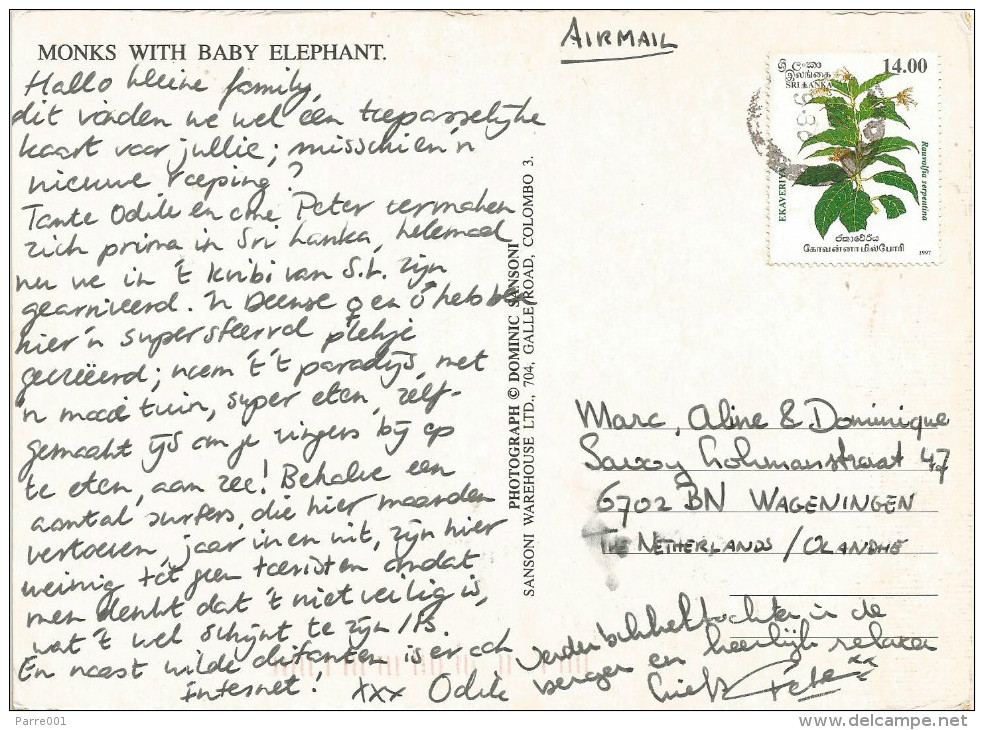 MONKS WITH BABY ELEPHANT.
AIRMAIL
Hallo kleine family,
dit vonden we wel één toepasselijke
kaart voor jullie; misschien 'n
nieuwe roeping?
Tante Odile en ome Peter vermaken
zich prima in Sri Lanka, helemaal
nu we in 't Kribi van S.L. zijn
gearriveerd. 'n Deense ♀ en ♂ hebben
hier 'n supersfeervol plekje
gecreëerd; noem 't 't paradijs, met
'n mooie tuin, super eten, zelf-
gemaakt ijs om je vingers bij op
te eten, aan zee! Behalve een
aantal surfers, die hier maanden
vertoeven, jaar in en uit, zijn hier
weinig tot geen toeristen omdat
men denkt dat 't niet veilig is,
wat 't wel schijnt te zijn
En naast wilde olifanten is er ook
Internet! xxx Odile
Verder in de
bergen en heerlijk relaxen
Peter
PHOTOGRAPH © DOMINIC SANSONI
SANSONI WAREHOUSE LTD., 704, GALLE ROAD, COLOMBO 3.
ශ්‍රී ලංකා
இலங்கை
SRI LANKA
14.00
EKAVERIYA
Rauvolfia serpentina
ඒකාවේරිය
கோவன்னாமில்போரி
1997
Marc, Aline & Dominique
Savorny Lohmanstraat 47
6702 BN WAGENINGEN
THE NETHERLANDS / OLANDHE
Parre001
http://www.delcampe.net